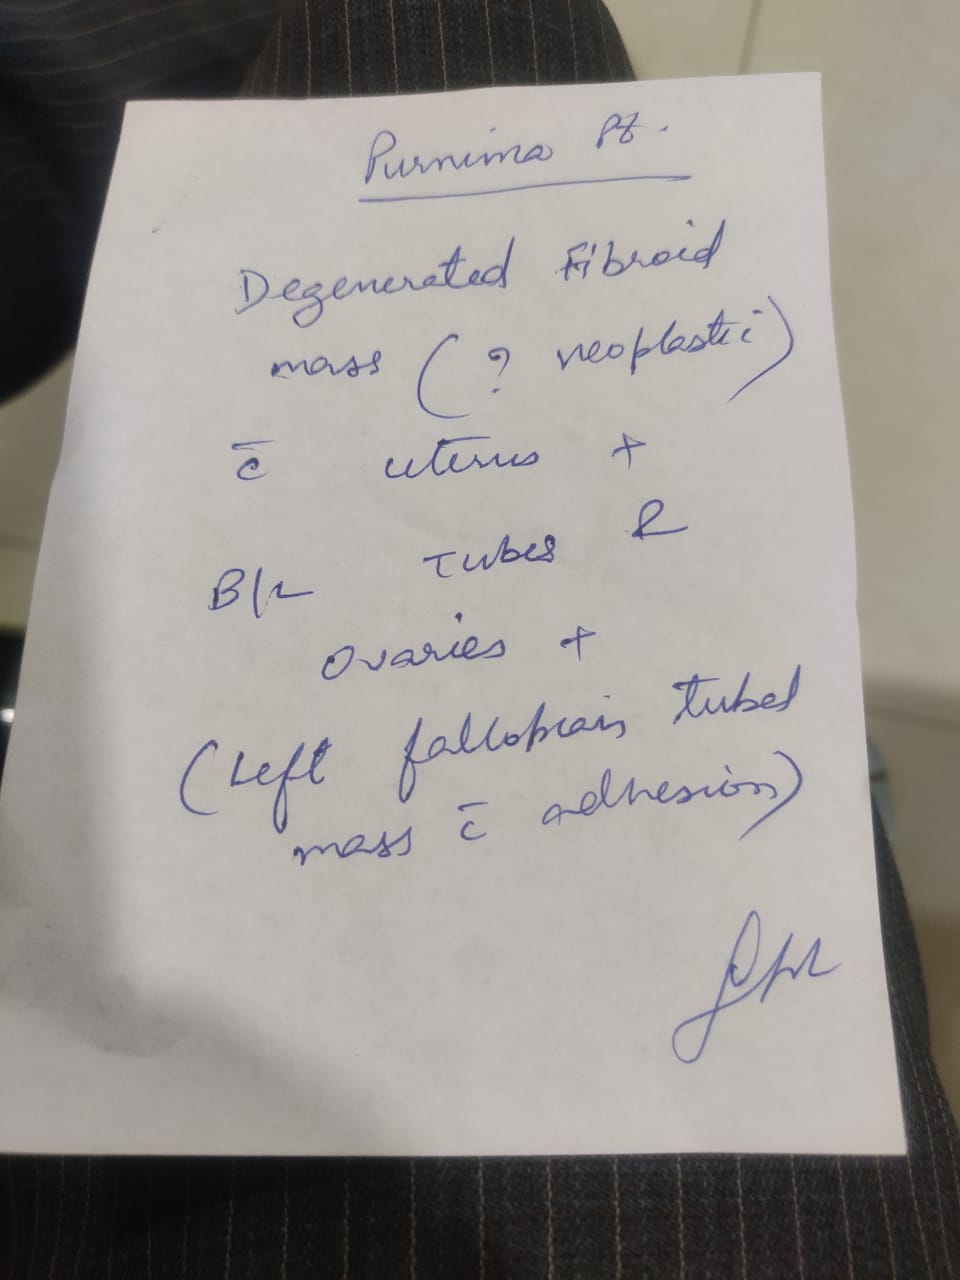 Purnima Pt.
Degenerated Fibroid
mass (? neoplastic)
c̄ uterus +
B/L tubes &
ovaries +
(Left fallopian tubal
mass c̄ adhesion)